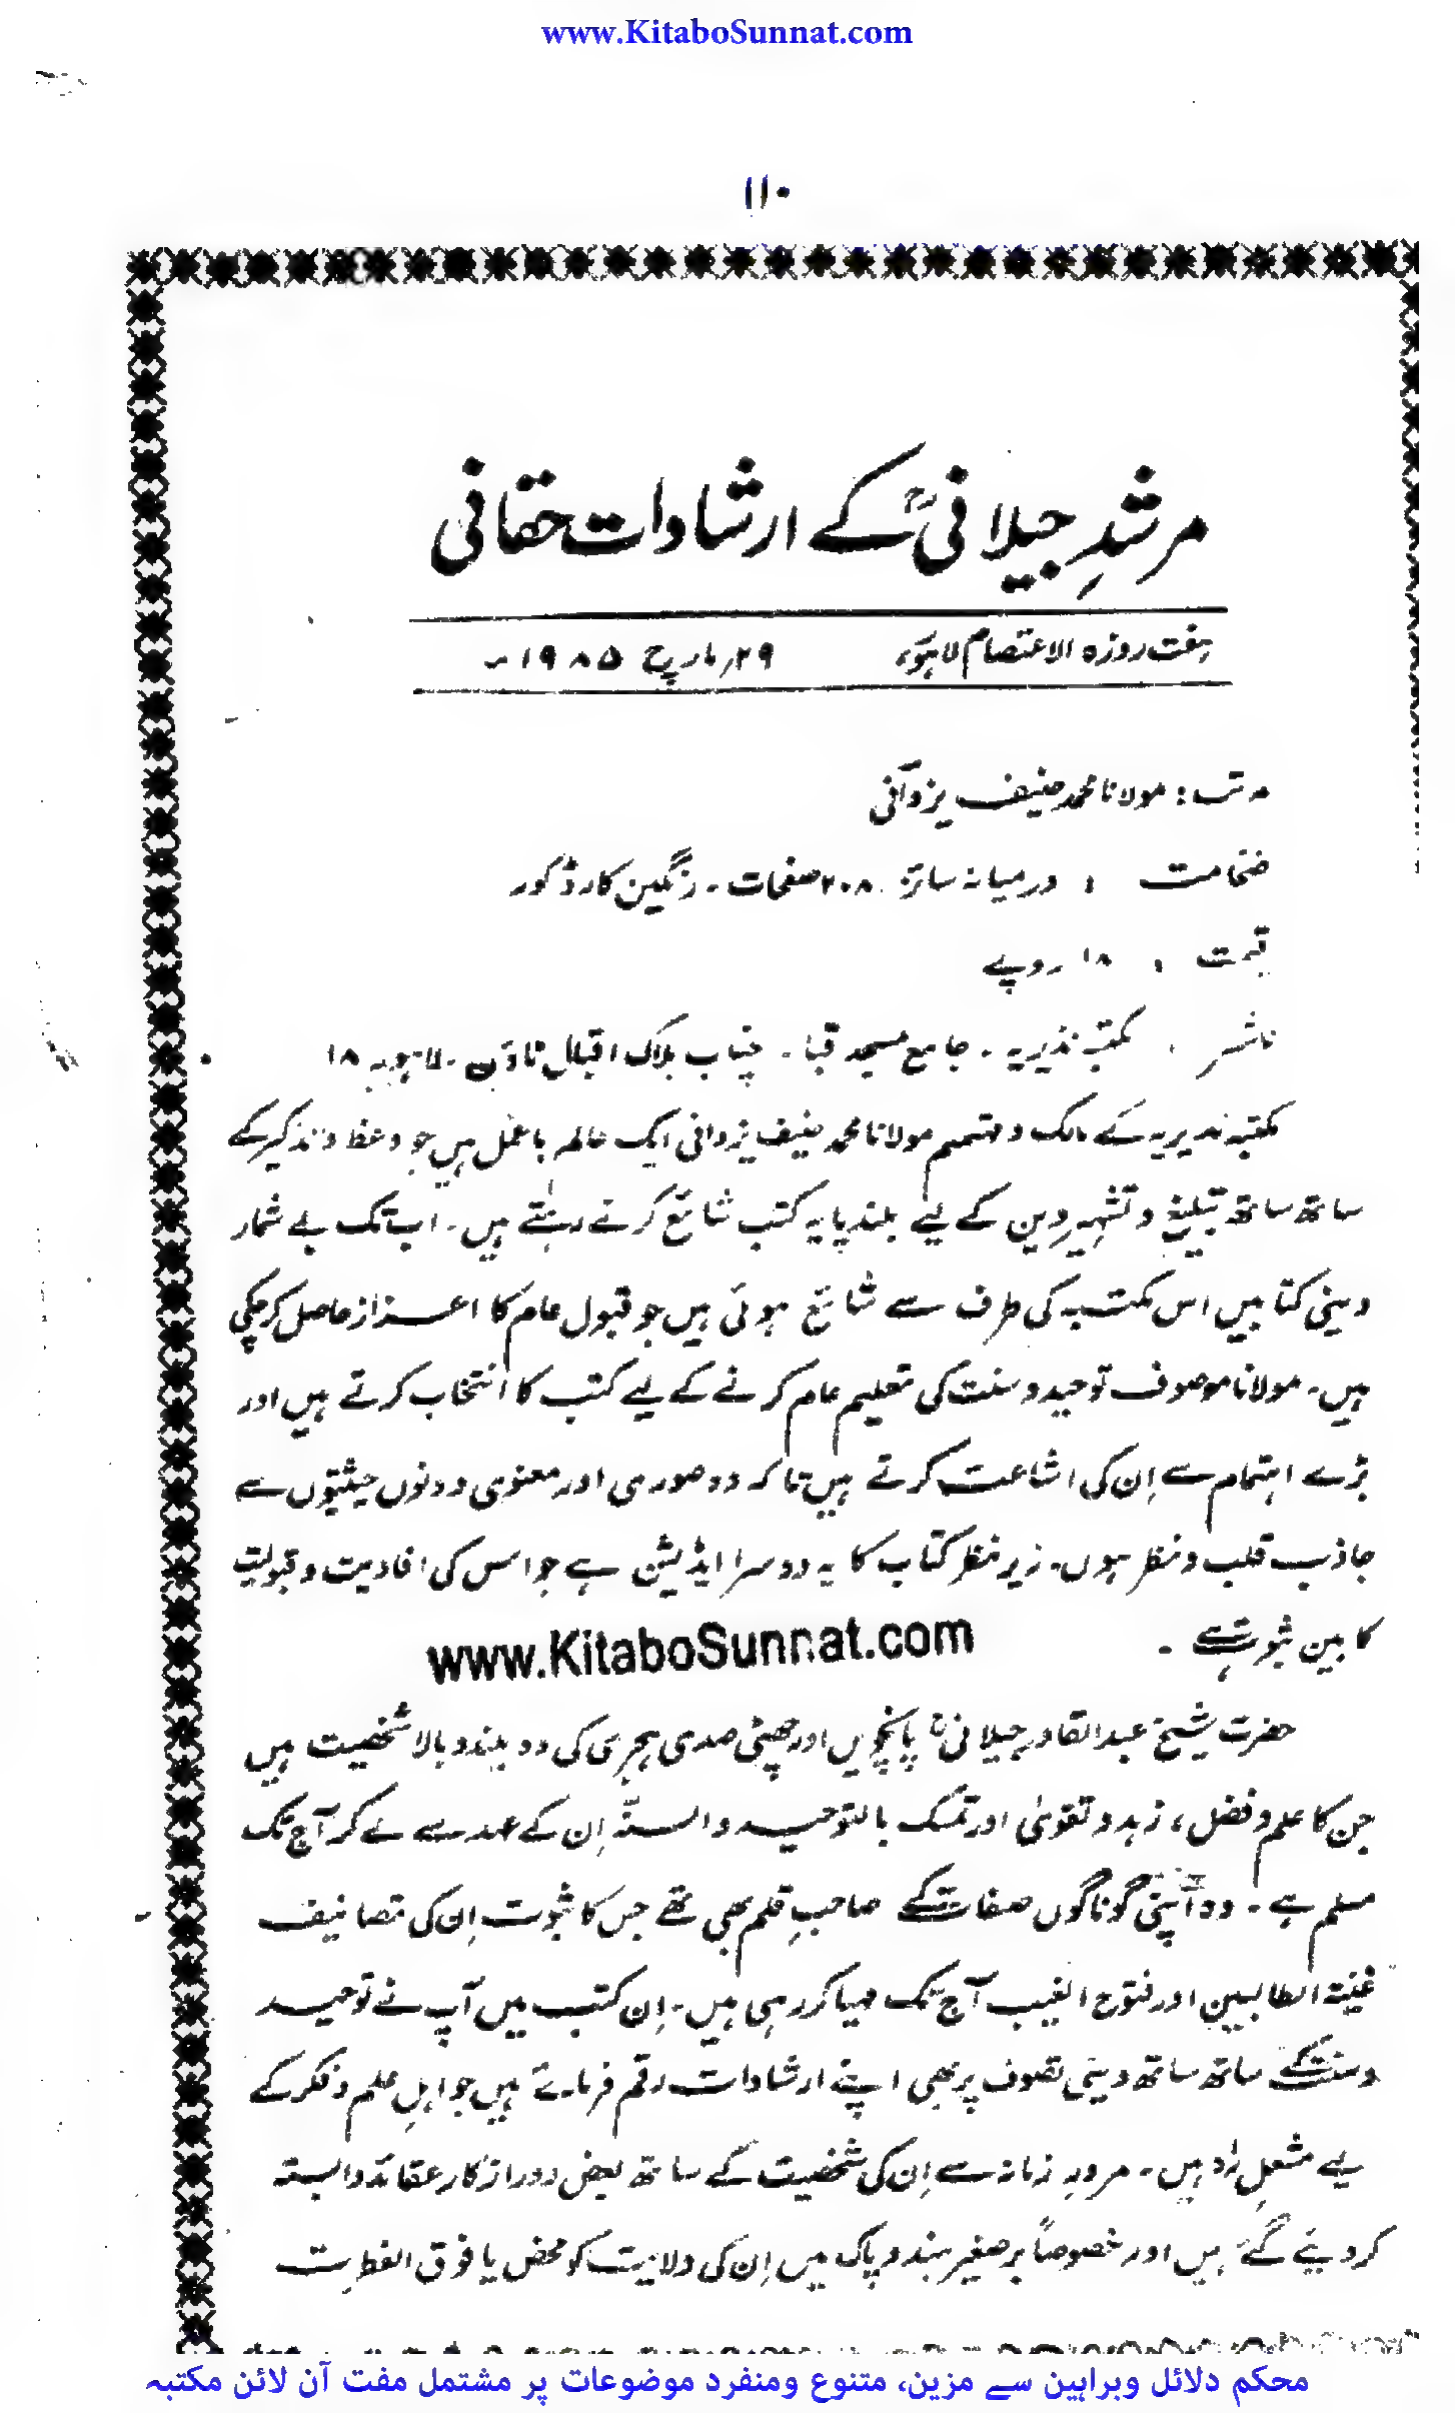 www.KitaboSunnat.com
۱۱۰
مرشدِ جیلانیؒ کے ارشادات حقانی
ہفت روزہ الاعتصام لاہور، ۲۹؍ مارچ ۱۹۸۵ء
مرتب : مولانا محمد حنیف یزدانی
ضخامت : درمیانہ سائز ۲۰۸ صفحات ۔ رنگین کارڈ کور
قیمت : ۱۸ روپے
ناشر : مکتبہ نذیریہ ۔ جامع مسجد قبا ۔ چناب بلاک اقبال ٹاؤن ۔ لاہور ۱۸
مکتبہ نذیریہ کے مالک و مہتمم مولانا محمد حنیف یزدانی ایک عالم باعمل ہیں جو وعظ و تذکیر کے
ساتھ ساتھ تبلیغ و تشہیرِ دین کے لیے بلند پایہ کتب شائع کرتے رہتے ہیں ۔ اب تک بے شمار
دینی کتابیں اس مکتبہ کی طرف سے شائع ہوئی ہیں جو قبول عام کا اعزاز حاصل کرچکی
ہیں ۔ مولانا موصوف توحید و سنت کی تعلیم عام کرنے کے لیے کتب کا انتخاب کرتے ہیں اور
بڑے اہتمام سے اِن کی اشاعت کرتے ہیں تاکہ وہ صوری اور معنوی دونوں حیثیتوں سے
جاذب قلب و نظر ہوں ۔ زیر نظر کتاب کا یہ دوسرا ایڈیشن ہے جو اس کی افادیت و قبولیت
کا بین ثبوت ہے ۔
www.KitaboSunnat.com
حضرت شیخ عبدالقادر جیلانیؒ پانچویں اور چھٹی صدی ہجری کی وہ بلند و بالا شخصیت ہیں
جن کا علم و فضل ، زہد و تقویٰ اور تمسک بالتوحید والسنّۃ اِن کے عہد سے لے کر آج تک
مسلم ہے ۔ وہ اپنی گوناگوں صفات کے صاحبِ قلم بھی تھے جس کا ثبوت اِن کی تصانیف
غنیۃ الطالبین اور فتوح الغیب آج تک مہیا کر رہی ہیں ۔ اِن کتب میں آپ نے توحید
و سنت کے ساتھ ساتھ دینی تصوف پر بھی اپنے ارشادات رقم فرمائے ہیں جو اہلِ علم و فکر کے
لیے مشعلِ راہ ہیں ۔ مرورِ زمانہ سے اِن کی شخصیت کے ساتھ بعض دور از کار عقائد وابستہ
کر دیئے گئے ہیں اور خصوصاً برصغیر ہند و پاک میں اِن کی ولایت کو محض یا فوق الفطرت
محکم دلائل وبراہین سے مزین، متنوع ومنفرد موضوعات پر مشتمل مفت آن لائن مکتبہ